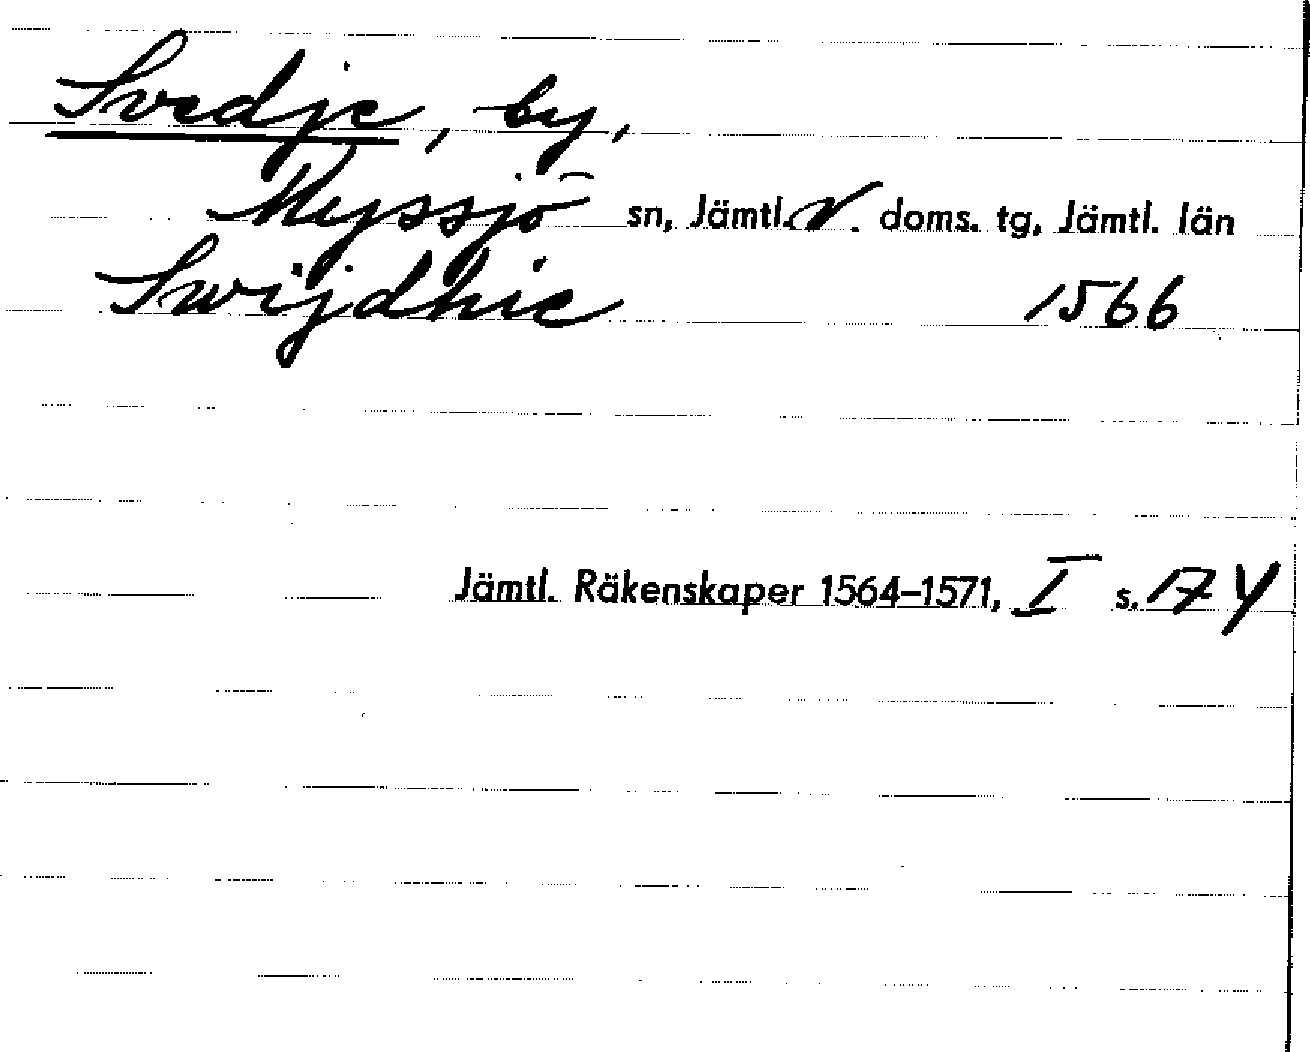 Svedje, by,
Myssjö sn, Jämtl. V. doms. tg, Jämtl. län
Swijdhie 1566
Jämtl. Räkenskaper 1564–1571, I s. 174